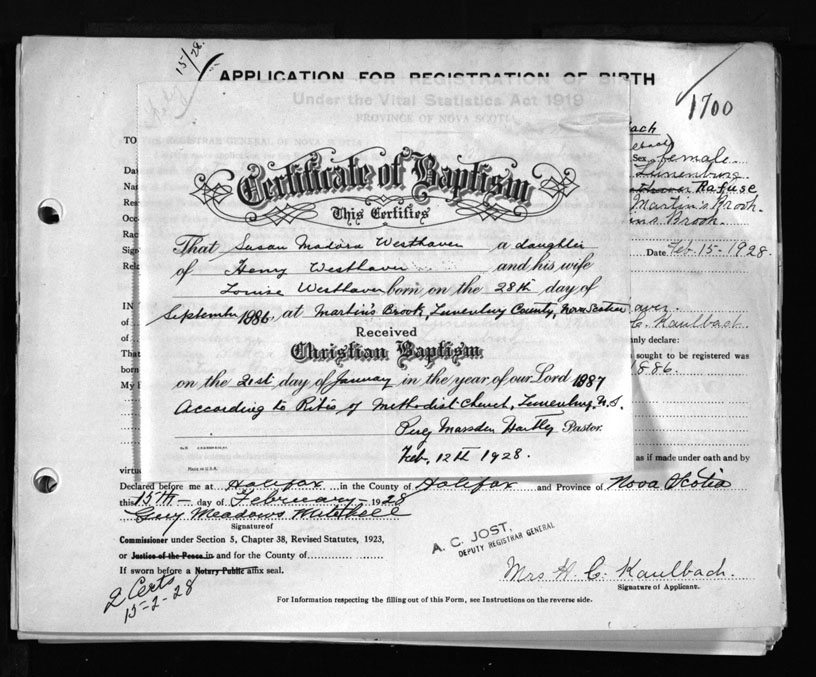 15/28
APPLICATION FOR REGISTRATION OF BIRTH
Under the Vital Statistics Act 1919
PROVINCE OF NOVA SCOTIA
1700
TO
Sex female
Lunenburg
Rafuse
Martin's Brook
ins Brook
Date Feb. 15 - 1928
Certificate of Baptism
This Certifies
That Susan Madora Westhaver a daughter
of Henry Westhaver and his wife
Louise Westhaver born on the 28th day of
September 1886, at Martin's Brook, Lunenburg County, Nova Scotia
Received
Christian Baptism
on the 21st day of January in the year of our Lord 1887
According to Rites of Methodist Church, Lunenburg, N.S.
Percy Marsden Hartley Pastor.
Feb. 12th 1928.
MADE IN U.S.A.
C. Kaulbach
nly declare:
sought to be registered was
1886.
as if made under oath and by
virtu
Declared before me at Halifax in the County of Halifax and Province of Nova Scotia
this 15th day of February 1928
Meadows Mitchell
Signature of
Commissioner under Section 5, Chapter 38, Revised Statutes, 1923,
or Justice of the Peace in and for the County of
If sworn before a Notary Public affix seal.
A. C. JOST,
DEPUTY REGISTRAR GENERAL
Mrs H. C. Kaulbach.
Signature of Applicant.
2 Certs
15-2-28
For Information respecting the filling out of this Form, see Instructions on the reverse side.